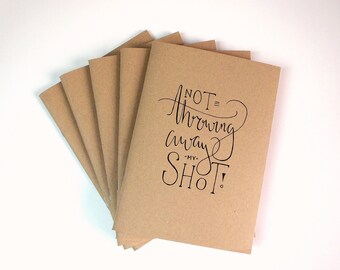 NOT
throwing
away
MY
SHOT!